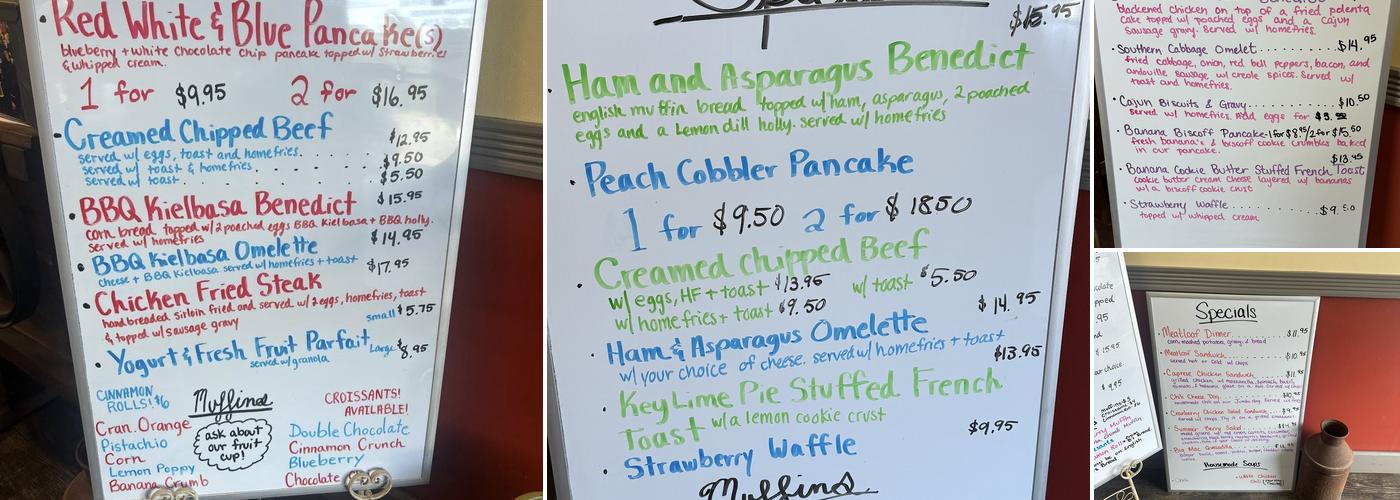 Red White & Blue Pancake(s)
blueberry + white chocolate chip pancake topped w/ strawberries
& whipped cream.
1 for $9.95 2 for $16.95
• Creamed Chipped Beef
served w/ eggs, toast and homefries. . . . . . $12.95
served w/ toast & homefries . . . . . . $9.50
served w/ toast . . . . . . $5.50
• BBQ Kielbasa Benedict $15.95
corn bread topped w/ 2 poached eggs BBQ Kielbasa + BBQ holly.
served w/ homefries
• BBQ Kielbasa Omelette $14.95
cheese + BBQ Kielbasa served w/ homefries + toast
• Chicken Fried Steak $17.95
hand breaded sirloin fried and served w/ 2 eggs, homefries, toast
& topped w/ sausage gravy
small $5.75
• Yogurt & Fresh Fruit Parfait Large $8.95
served w/ granola
CINNAMON ROLLS! $6
Muffins
CROISSANTS! AVAILABLE!
ask about our fruit cup!
Cran. Orange
Pistachio
Corn
Lemon Poppy
Banana Crumb
Double Chocolate
Cinnamon Crunch
Blueberry
Chocolate
$15.95
• Ham and Asparagus Benedict
english muffin bread topped w/ ham, asparagus, 2 poached
eggs and a Lemon dill holly. served w/ homefries
• Peach Cobbler Pancake
1 for $9.50 2 for $18.50
• Creamed chipped Beef
w/ eggs, HF + toast $13.95 w/ toast $5.50
w/ homefries + toast $9.50
$14.95
• Ham & Asparagus Omelette
w/ your choice of cheese. served w/ homefries + toast
$13.95
• Key Lime Pie Stuffed French
Toast w/ a lemon cookie crust
$9.95
• Strawberry Waffle
Muffins
blackened chicken on top of a fried polenta
cake topped w/ poached eggs and a cajun
sausage gravy. served w/ homefries.
• Southern Cabbage Omelet . . . . . . . . $14.95
fried cabbage, onion, red bell peppers, bacon, and
andouille sausage w/ creole spices. Served w/
toast and homefries.
• Cajun Biscuits & Gravy . . . . . . . . $10.50
Served w/ homefries. Add eggs for
• Banana Biscoff Pancake - 1 for $8.95/2 for $15.50
fresh banana's & biscoff cookie crumbles baked
in our pancake.
$13.95
• Banana Cookie Butter Stuffed French Toast
cookie butter cream cheese layered w/ bananas
w/ a biscoff cookie crust
• Strawberry Waffle . . . . . . . . $9.50
topped w/ whipped cream
Specials
• Meatloaf Dinner . . . . . . $11.95
corn, mashed potatoes, gravy, & bread
• Meatloaf Sandwich . . . . . . $10.95
served hot or cold w/ chips
• Caprese Chicken Sandwich . . . . . . $11.95
• Chili Cheese Dog . . . . . . $10.95
• Cranberry Chicken Salad Sandwich . . . $9.95
• Summer Berry Salad . . . . . .
• Big Mac Quesadilla
Housemade Soups
• Chili
• White Chicken Chili